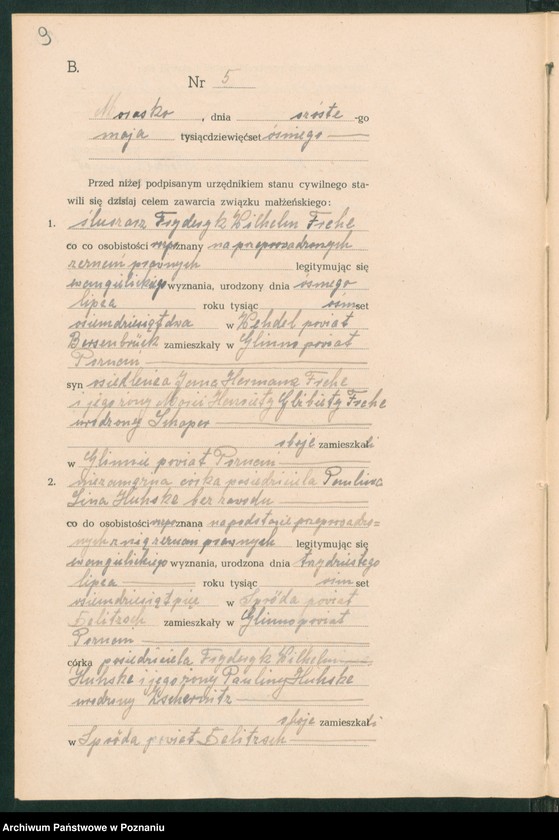 9
B.
Nr 5
Morasko, dnia szóste-go
maja tysiącdziewięćset ósmego
Przed niżej podpisanym urzędnikiem stanu cywilnego sta-
wili się dzisiaj celem zawarcia związku małżeńskiego:
1. ślusarz Fryderyk Wilhelm Frehe
co co osobistości znany na przeprowadzonych
zeznań prawnych legitymując się
ewangielickiego wyznania, urodzony dnia ósmego
lipca roku tysiąc ósmset
osiemdziesiątdwa w Wehdel powiat
Bersenbrück zamieszkały w Glinno powiat
Poznań
syn osiedleńca Jana Hermana Frehe
i jego żony Marii Henriety Elżbiety Frehe
urodzony Schaper
oboje zamieszkali
w Glinnie powiat Poznań
2. niezamężna córka posiedziciela Paulina
Lina Huhske bez zawodu
co do osobistości znana na podstawie przeprowadzo=
nych zeznań prawnych legitymując się
ewangielickiego wyznania, urodzona dnia trzydziestego
lipca roku tysiąc ósmset
osiemdziesiątpięć w Spröda powiat
Delitzsch zamieszkały w Glinno powiat
Poznań
córka posiedziciela Fryderyk Wilhelm
Huhske i jego żony Pauliny Huhske
urodzony Zscherwitz
oboje zamieszkali
w Spröda powiat Delitzsch
Archiwum Państwowe w Poznaniu